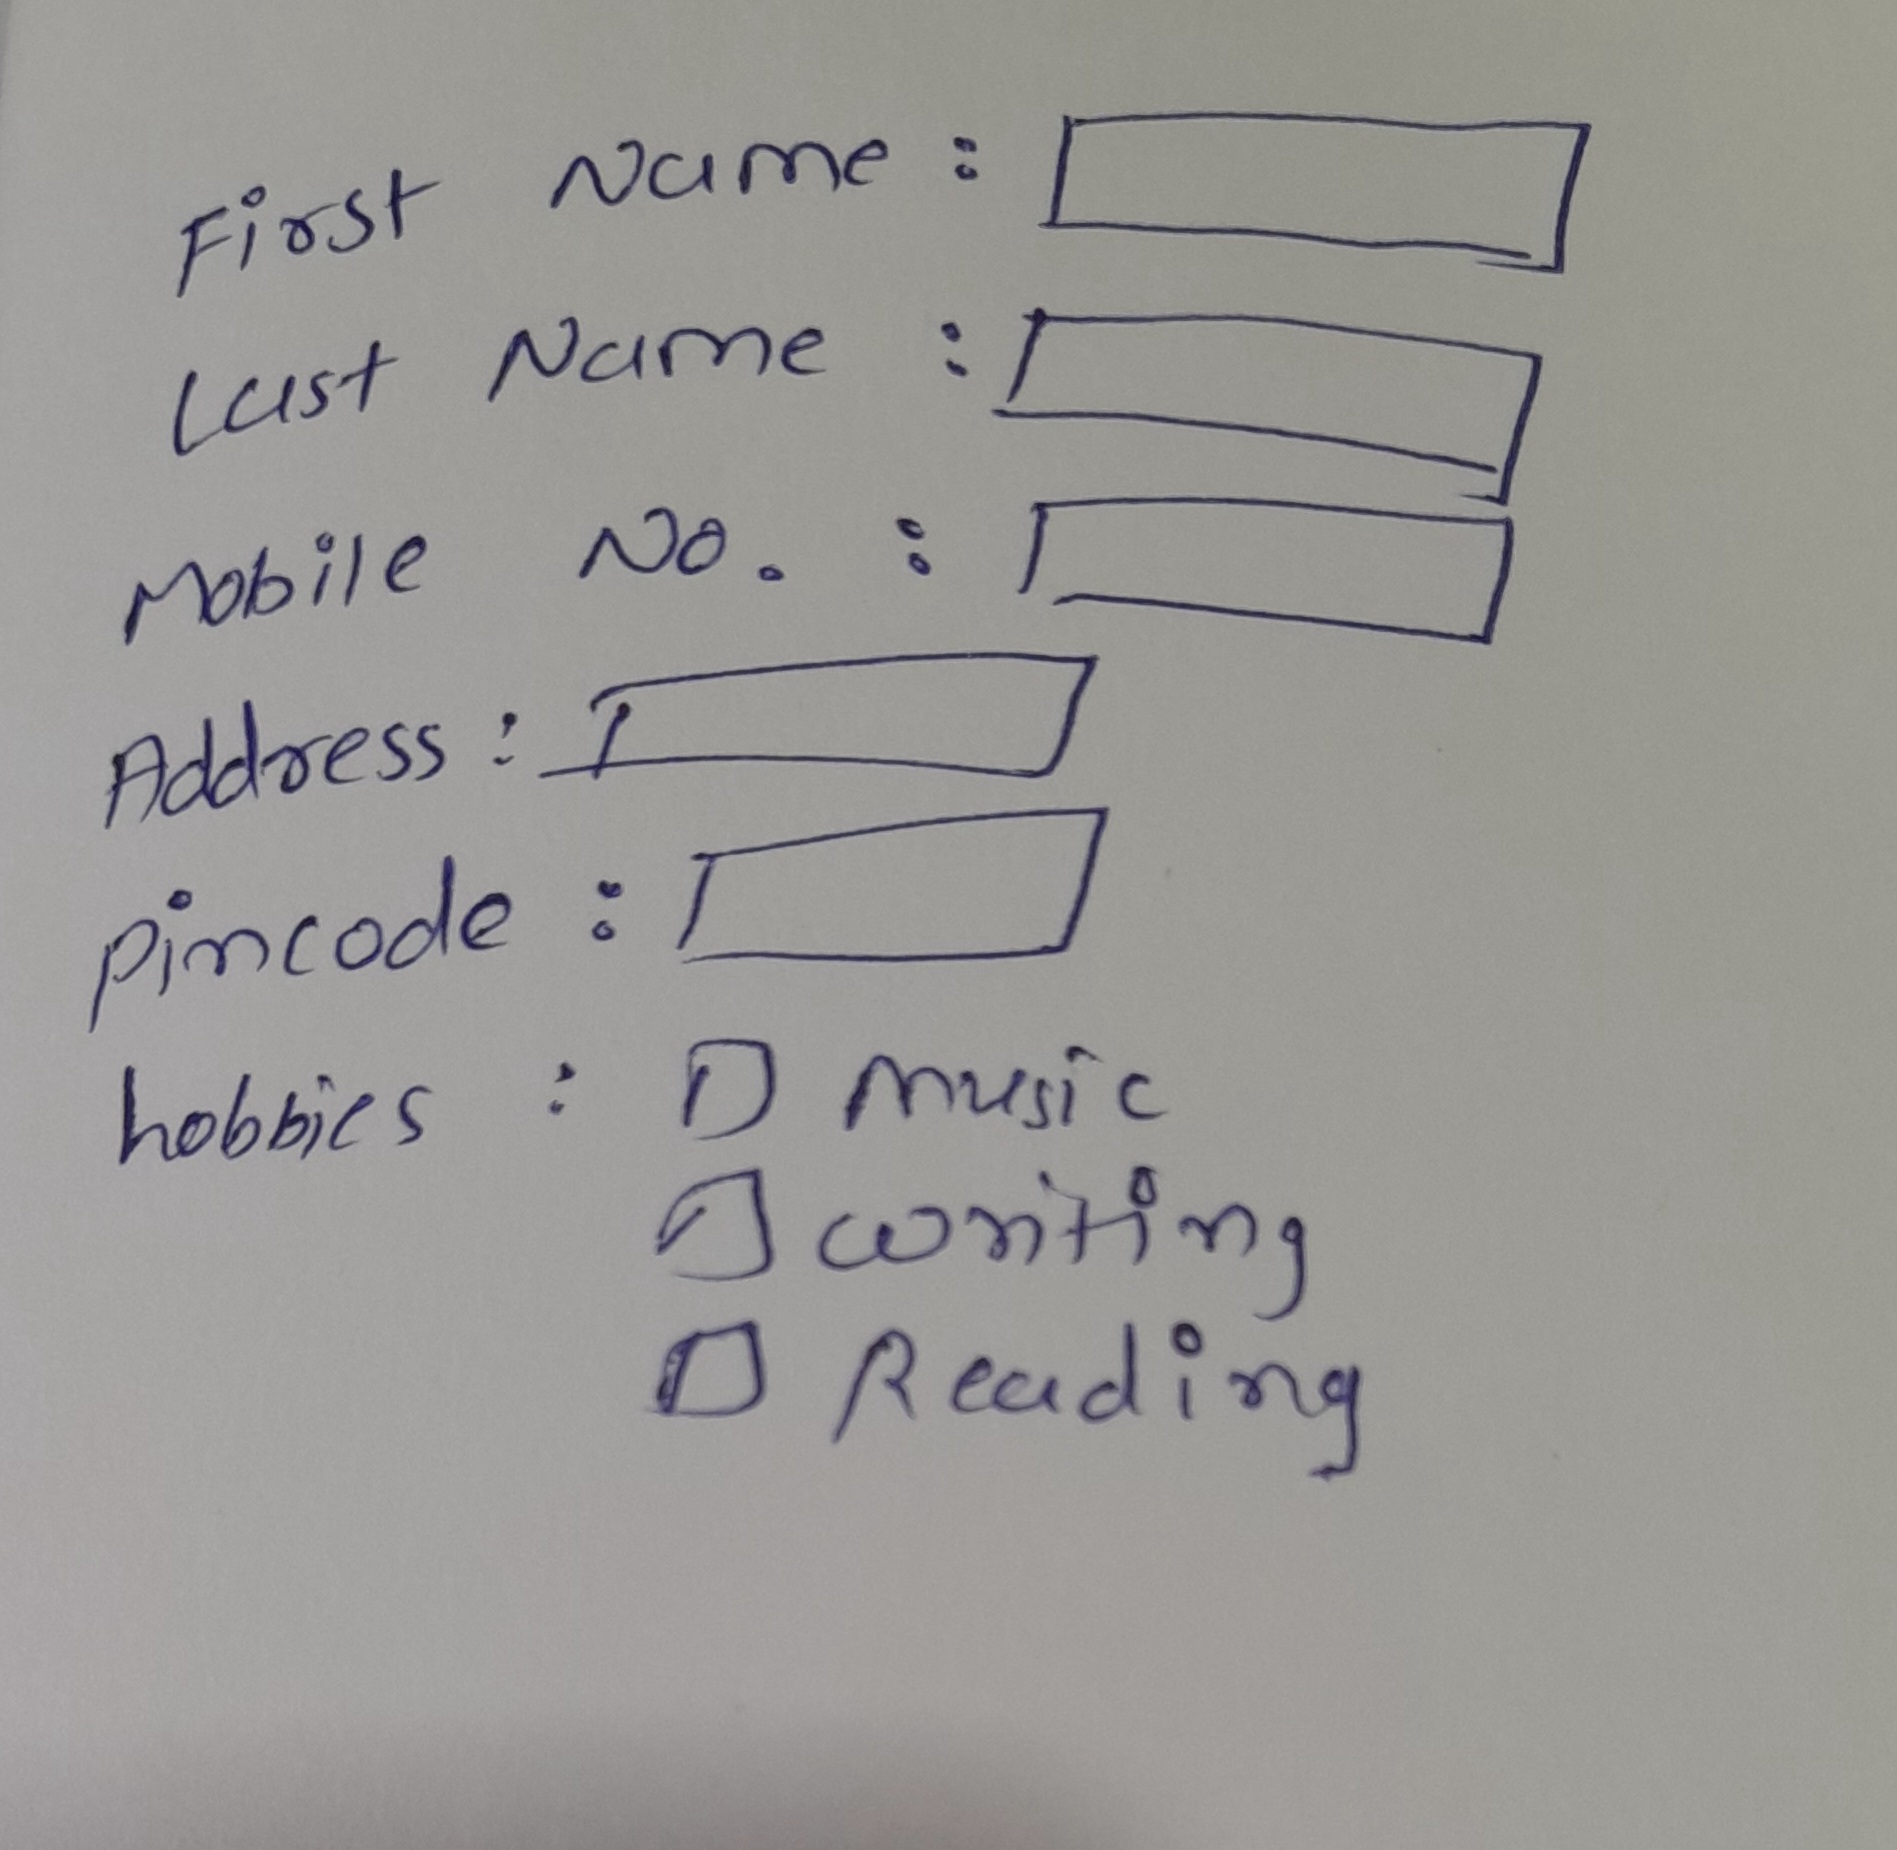 First Name :
Last Name :
Mobile No. :
Address :
pincode :
hobbies : music
writing
Reading